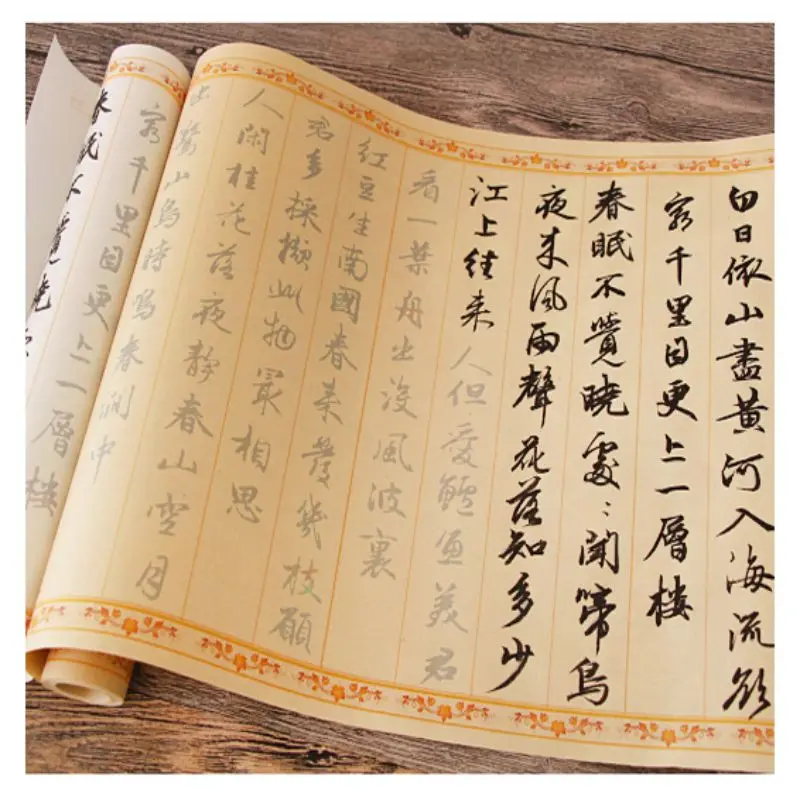 白日依山盡黃河入海流欲
窮千里目更上一層樓
春眠不覺曉處:聞啼鳥
夜来風雨聲花落知多少
江上往来人但愛鱸魚美君
看一葉舟出沒風波裏
紅豆生南國春来發幾枝願
君多採擷此物最相思
人閑桂花落夜靜春山空月
出驚山鳥時鳴春澗中
窮千里目更上一層樓
春眠不覺曉